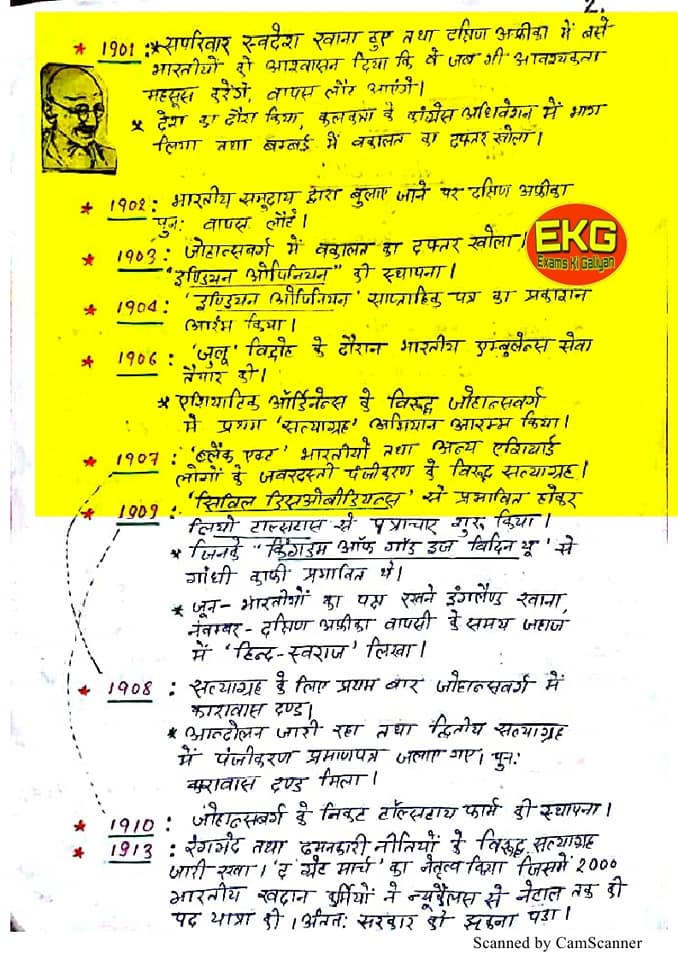 2.
* 1901 : * सपरिवार स्वदेश रवाना हुए तथा दक्षिण अफ्रीका में बसे
भारतीयों को आश्वासन दिया कि वे जब भी आवश्यकता
महसूस करेंगे, वापस लौट आएंगे।
* देश का दौरा किया, कलकत्ता के कांग्रेस अधिवेशन में भाग
लिया तथा बम्बई में वकालत का दफ्तर खोला।
* 1902 : भारतीय समुदाय द्वारा बुलाए जाने पर दक्षिण अफ्रीका
पुनः वापस लौटे।
* 1903 : जोहान्सबर्ग में वकालत का दफ्तर खोला।
"इण्डियन ओपिनियन" की स्थापना।
EKG
Exams Ki Galiyan
* 1904 : 'इण्डियन ओपिनियन' साप्ताहिक पत्र का प्रकाशन
आरंभ किया।
* 1906 : 'जुलू' विद्रोह के दौरान भारतीय एम्बुलेन्स सेवा
तैयार की।
* एशियाटिक ऑर्डिनेन्स के विरूद्ध जोहान्सबर्ग
में प्रथम 'सत्याग्रह' अभियान आरम्भ किया।
* 1907 : 'ब्लैक एक्ट' भारतीयों तथा अन्य एशियाई
लोगों के जबरदस्ती पंजीकरण के विरूद्ध सत्याग्रह।
* 1909 : 'सिविल डिसओबीडियन्स' से प्रभावित होकर
लियो टाल्सटास से पत्राचार शुरू किया।
* जिनके "किंगडम ऑफ गॉड इज विदिन यू' से
गांधी काफी प्रभावित थे।
* जून- भारतीयों का पक्ष रखने इंगलैण्ड रवाना,
नवम्बर- दक्षिण अफ्रीका वापसी के समय जहाज
में 'हिन्द-स्वराज' लिखा।
* 1908 : सत्याग्रह के लिए प्रथम बार जोहान्सबर्ग में
कारावास दण्ड।
* आन्दोलन जारी रहा तथा द्वितीय सत्याग्रह
में पंजीकरण प्रमाणपत्र जलाए गए। पुनः
कारावास दण्ड मिला।
* 1910 : जोहान्सबर्ग के निकट टॉल्सटाय फार्म की स्थापना।
* 1913 : रंगभेद तथा दमनकारी नीतियों के विरूद्ध सत्याग्रह
जारी रखा। 'द ग्रेट मार्च' का नेतृत्व किया जिसमें 2000
भारतीय खदान कर्मियों ने न्यूकैलस से नेटाल तक की
पद यात्रा की। अंततः सरकार को झुकना पड़ा।
Scanned by CamScanner